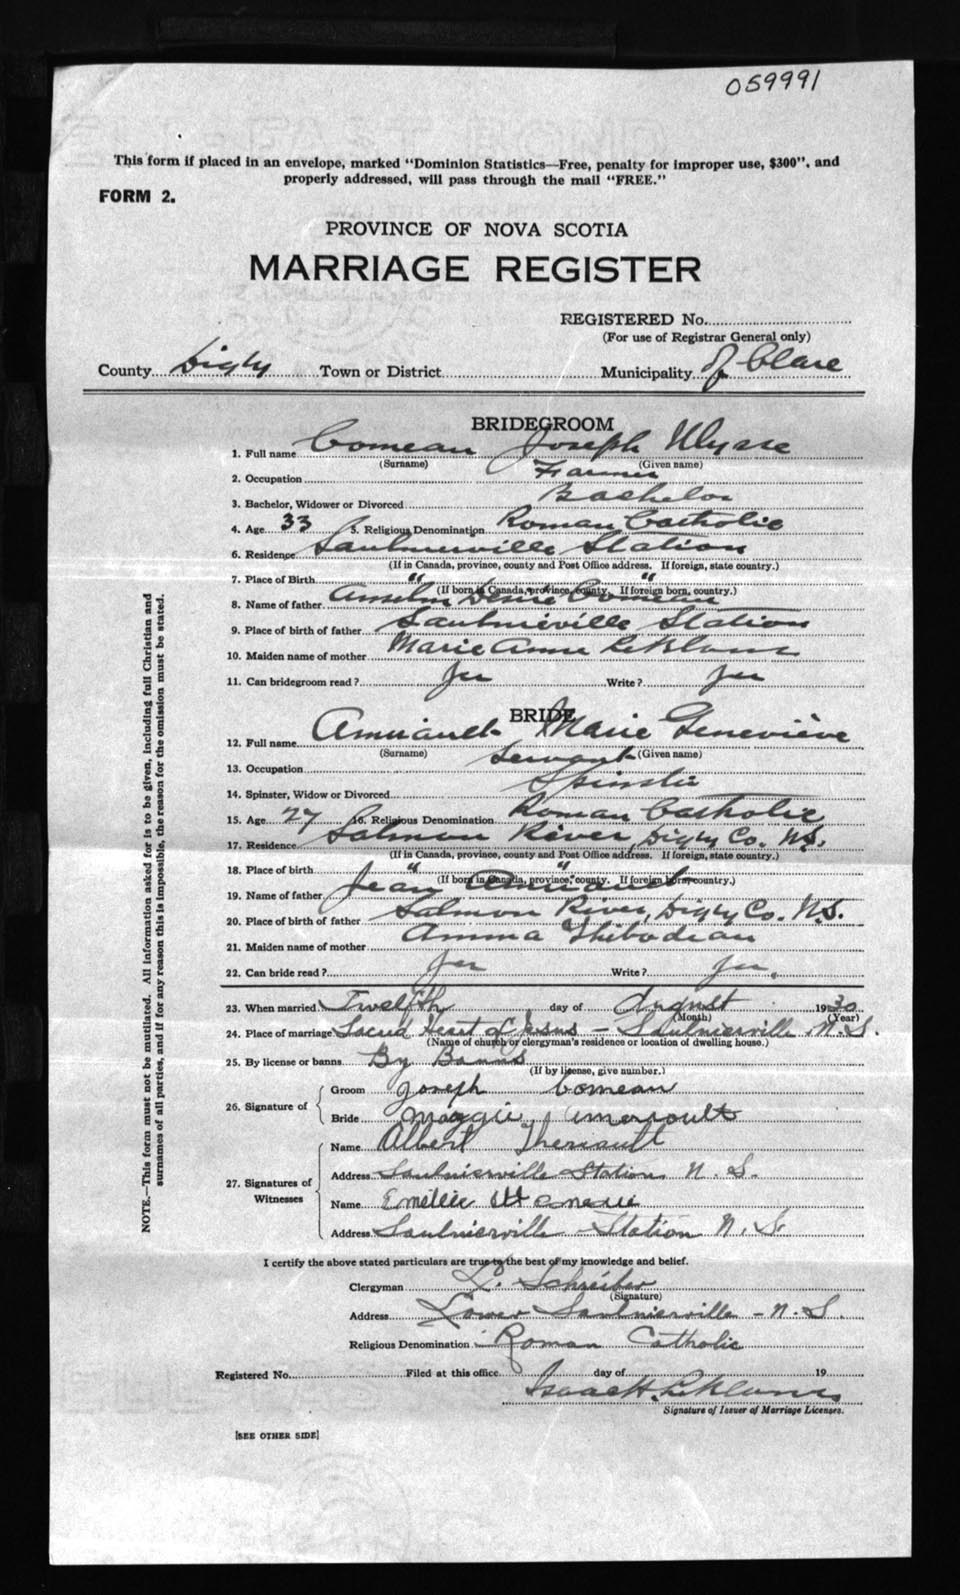 059991
This form if placed in an envelope, marked "Dominion Statistics—Free, penalty for improper use, $300", and
properly addressed, will pass through the mail "FREE."
FORM 2.
PROVINCE OF NOVA SCOTIA
MARRIAGE REGISTER
REGISTERED No.
(For use of Registrar General only)
County Digby Town or District Municipality of Clare
BRIDEGROOM
1. Full name Comeau Joseph Ulysse
(Surname) (Given name)
2. Occupation Farmer
3. Bachelor, Widower or Divorced Bachelor
4. Age 33 5. Religious Denomination Roman Catholic
6. Residence Saulnierville Station
(If in Canada, province, county and Post Office address. If foreign, state country.)
7. Place of Birth " "
(If born in Canada, province, county. If foreign born, country.)
8. Name of father Anselm Comeau
9. Place of birth of father Saulnierville Station
10. Maiden name of mother Marie Anne
11. Can bridegroom read? Yes Write? Yes
BRIDE
12. Full name Amirault Marie Geneviève
(Surname) (Given name)
13. Occupation Servant
14. Spinster, Widow or Divorced Spinster
15. Age 27 16. Religious Denomination Roman Catholic
17. Residence Salmon River, Digby Co. N.S.
(If in Canada, province, county and Post Office address. If foreign, state country.)
18. Place of birth " "
(If born in Canada, province, county. If foreign born, country.)
19. Name of father Jean Amirault
20. Place of birth of father Salmon River, Digby Co. N.S.
21. Maiden name of mother Amma Thibodeau
22. Can bride read? Yes Write? Yes.
23. When married Twelfth day of August 1930
(Month) (Year)
24. Place of marriage Sacred Heart of Jesus – Saulnierville N.S.
(Name of church or clergyman's residence or location of dwelling house.)
25. By license or banns By Banns
(If by license, give number.)
26. Signature of Groom Joseph Comeau
Bride Maggie Ameroult
27. Signatures of Witnesses
Name Albert Theriault
Address Saulnierville Station N. S.
Name Emilie
Address Saulnierville Station N. S.
I certify the above stated particulars are true to the best of my knowledge and belief.
Clergyman L. Schreiber
(Signature)
Address Lower Saulnierville – N. S.
Religious Denomination Roman Catholic
Registered No. Filed at this office day of 19
Isaac H.
Signature of Issuer of Marriage Licenses.
[SEE OTHER SIDE]
NOTE.—This form must not be mutilated. All information asked for is to be given, including full Christian and
surnames of all parties, and if for any reason this is impossible, the reason for the omission must be stated.